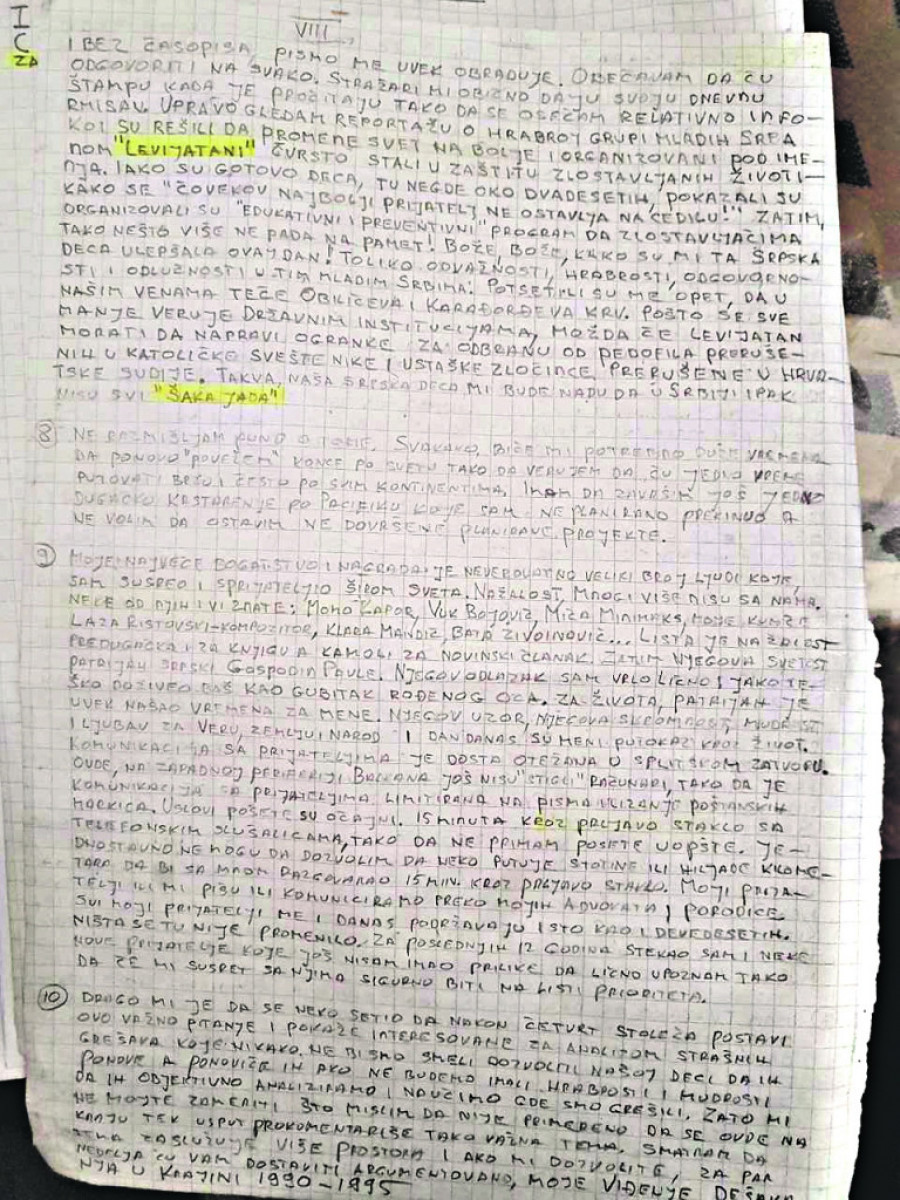 I
C
ZA
VIII
I BEZ ČASOPISA, PISMO ME UVEK OBRADUJE. OBEĆAVAM DA ĆU
ODGOVORITI NA SVAKO. STRAŽARI MI OBIČNO DAJU SVOJU DNEVNU
ŠTAMPU KADA JE PROČITAJU TAKO DA SE OSEĆAM RELATIVNO INFO-
RMISAN. UPRAVO GLEDAM REPORTAŽU O HRABROJ GRUPI MLADIH SRBA
KOJI SU REŠILI DA PROMENE SVET NA BOLJE I ORGANIZOVANI POD IME-
NOM "LEVIJATANI" ČVRSTO STALI U ZAŠTITU ZLOSTAVLJANIH ŽIVOTI-
NJA. IAKO SU GOTOVO DECA, TU NEGDE OKO DVADESETIH, POKAZALI SU
KAKO SE "ČOVEKOV NAJBOLJI PRIJATELJ NE OSTAVLJA NA CEDILU!" ZATIM,
ORGANIZOVALI SU "EDUKATIVNI I PREVENTIVNI" PROGRAM DA ZLOSTAVLJAČIMA
TAKO NEŠTO VIŠE NE PADA NA PAMET! BOŽE, BOŽE, KAKO SU MI TA SRPSKA
DECA ULEPŠALA OVAJ DAN! TOLIKO ODVAŽNOSTI, HRABROSTI, ODGOVORNO-
STI I ODLUČNOSTI U TIM MLADIM SRBIMA! POTSETILI SU ME OPET, DA U
NAŠIM VENAMA TEČE OBILIĆEVA I KARAĐORĐEVA KRV. POŠTO SE SVE
MANJE VERUJE DRŽAVNIM INSTITUCIJAMA, MOŽDA ĆE LEVIJATAN
MORATI DA NAPRAVI OGRANKE ZA ODBRANU OD PEDOFILA PRERUŠE-
NIH U KATOLIČKE SVEŠTENIKE I USTAŠKE ZLOČINCE PRERUŠENE U HRVA-
TSKE SUDIJE. TAKVA, NAŠA SRPSKA DECA MI BUDE NADU DA U SRBIJI IPAK
NISU SVI "ŠAKA JADA"
8) NE RAZMIŠLJAM PUNO O TOME. SVAKAKO, BIĆE MI POTREBNO DUŽE VREMENA
DA PONOVO "POVEŽEM" KONCE PO SVETU TAKO DA VERUJEM DA ĆU JEDNO VREME
PUTOVATI BRZO I ČESTO PO SVIM KONTINENTIMA. IMAM DA ZAVRŠIM JOŠ JEDNO
DUGAČKO KRSTARENJE PO PACIFIKU KOJE SAM NE PLANIRANO PREKINUO A
NE VOLIM DA OSTAVIM NE DOVRŠENE PLANIRANE PROJEKTE.
9) MOJE NAJVEĆE BOGATSTVO I NAGRADA JE NEVEROVATNO VELIKI BROJ LJUDI KOJE
SAM SUSREO I SPRIJATELJIO ŠIROM SVETA. NAŽALOST, MNOGI VIŠE NISU SA NAMA.
NEKE OD NJIH I VI ZNATE: MOMO KAPOR, VUK BOJOVIĆ, MIĆA MINIMAKS, MOJE KUMČE
LAZA RISTOVSKI-KOMPOZITOR, KLARA MANDIĆ, BATA ŽIVOINOVIĆ... LISTA JE
PREDUGAČKA I ZA KNJIGU A KAMOLI ZA NOVINSKI ČLANAK. ZATIM NJEGOVA SVETOST
PATRIJAH SRPSKI GOSPODIN PAVLE. NJEGOV ODLAZAK SAM VRLO LIČNO I JAKO TE-
ŠKO DOŽIVEO BAŠ KAO GUBITAK ROĐENOG OCA. ZA ŽIVOTA, PATRIJAH JE
UVEK NAŠAO VREMENA ZA MENE. NJEGOV UZOR, NJEGOVA SKROMNOST, MUDROST
I LJUBAV ZA VERU, ZEMLJU I NAROD I DAN DANAS SU MENI PUTOKAZ KROZ ŽIVOT.
KOMUNIKACIJA SA PRIJATELJIMA JE DOSTA OTEŽANA U SPLITSKOM ZATVORU.
OVDE, NA ZAPADNOJ PERIFERIJI BALKANA JOŠ NISU "STIGLI" RAČUNARI, TAKO DA JE
KOMUNIKACIJA SA PRIJATELJIMA LIMITIRANA NA PISMA I LIZANJE POŠTANSKIH
MARKICA. USLOVI POSETE SU OČAJNI. 15 MINUTA KROZ PRLJAVO STAKLO SA
TELEFONSKIM SLUŠALICAMA, TAKO DA NE PRIMAM POSETE UOPŠTE. JE-
DNOSTAVNO NE MOGU DA DOZVOLIM DA NEKO PUTUJE STOTINE ILI HILJADE KILOME-
TARA DA BI SA MNOM RAZGOVARAO 15 MIN. KROZ PRLJAVO STAKLO. MOJI PRIJA-
TELJI ILI MI PIŠU ILI KOMUNICIRAMO PREKO MOJIH ADVOKATA I PORODICE.
SVI MOJI PRIJATELJI ME I DANAS PODRŽAVAJU ISTO KAO I DEVEDESETIH.
NIŠTA SE TU NIJE PROMENILO. ZA POSLEDNJIH 12 GODINA STEKAO SAM I NEKE
NOVE PRIJATELJE KOJE JOŠ NISAM IMAO PRILIKE DA LIČNO UPOZNAM TAKO
DA ĆE MI SUSRET SA NJIMA SIGURNO BITI NA LISTI PRIORITETA.
10) DRAGO MI JE DA SE NEKO SETIO DA NAKON ČETVRT STOLEĆA POSTAVI
OVO VAŽNO PITANJE I POKAŽE INTERESOVANJE ZA ANALIZOM STRAŠNIH
GREŠAKA KOJE NIKAKO NE BISMO SMELI DOZVOLITI NAŠOJ DECI DA IH
PONOVE A PONOVIĆE IH AKO NE BUDEMO IMALI HRABROSTI I MUDROSTI
DA IH OBJEKTIVNO ANALIZIRAMO I NAUČIMO GDE SMO GREŠILI. ZATO MI
NE MOJTE ZAMERITI ŠTO MISLIM DA NIJE PRIMERENO DA SE OVDE NA
KRAJU TEK USPUT PROKOMENTARIŠE TAKO VAŽNA TEMA. SMATRAM DA
TEMA ZASLUŽUJE VIŠE PROSTORA I AKO MI DOZVOLITE, ZA PAR
NEDELJA ĆU VAM DOSTAVITI ARGUMENTOVANO, MOJE VIĐENJE DEŠAVA
NJA U KRAJINI 1990-1995